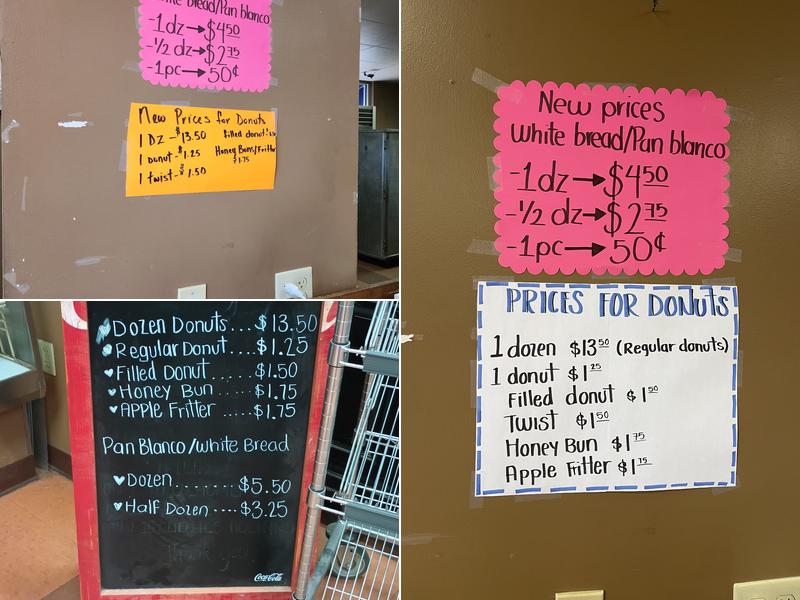 white bread/Pan blanco
-1dz→$4.50
-½ dz→$2.75
-1pc→50¢
New Prices for Donuts
1 DZ - $13.50 filled donut
1 Donut - $1.25 Honey Buns/Fritter
$1.75
1 twist - $1.50
Dozen Donuts....$13.50
Regular Donut....$1.25
Filled Donut......$1.50
Honey Bun....$1.75
APPle Fritter.....$1.75
Pan Blanco/white Bread
Dozen.......$5.50
Half Dozen....$3.25
Thank you
Coca-Cola
New prices
white bread/Pan blanco
-1dz→$4 50
-½ dz→$2 75
-1pc→50¢
PRICES FOR DONUTS
1 dozen $13 50 (Regular donuts)
1 donut $1 25
Filled donut $1 50
Twist $1 50
Honey Bun $1 75
Apple Fritter $1 75